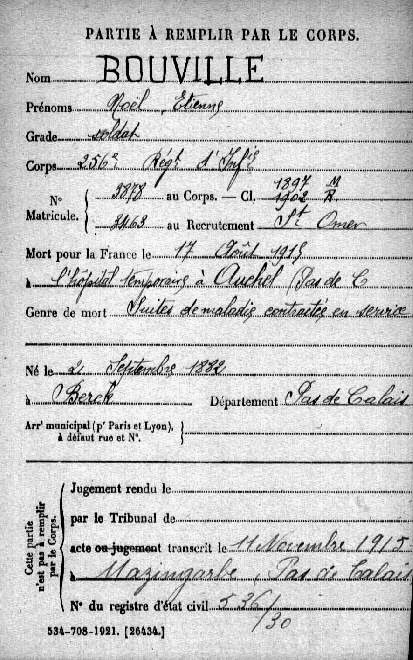 PARTIE À REMPLIR PAR LE CORPS.
Nom BOUVILLE
Prénoms Noël, Etienne
Grade soldat
Corps 256e Regt d'Infie
1897 M
N° 3878 au Corps. — Cl. 1902 R
Matricule. 2463 au Recrutement St Omer
Mort pour la France le 17 Août 1915
à l'hôpital temporaire à Auchel (Pas de C
Genre de mort Suites de maladie contractée en service
Né le 2 Septembre 1882
à Berck Département Pas de Calais
Arrt municipal (pr Paris et Lyon),
à défaut rue et N°.
Cette partie
n'est pas à remplir
par le Corps.
Jugement rendu le
par le Tribunal de
acte ou jugement transcrit le 11 Novembre 1915
à Mazingarbe, Pas de Calais
N° du registre d'état civil 536/30
534-708-1921. [26434.]